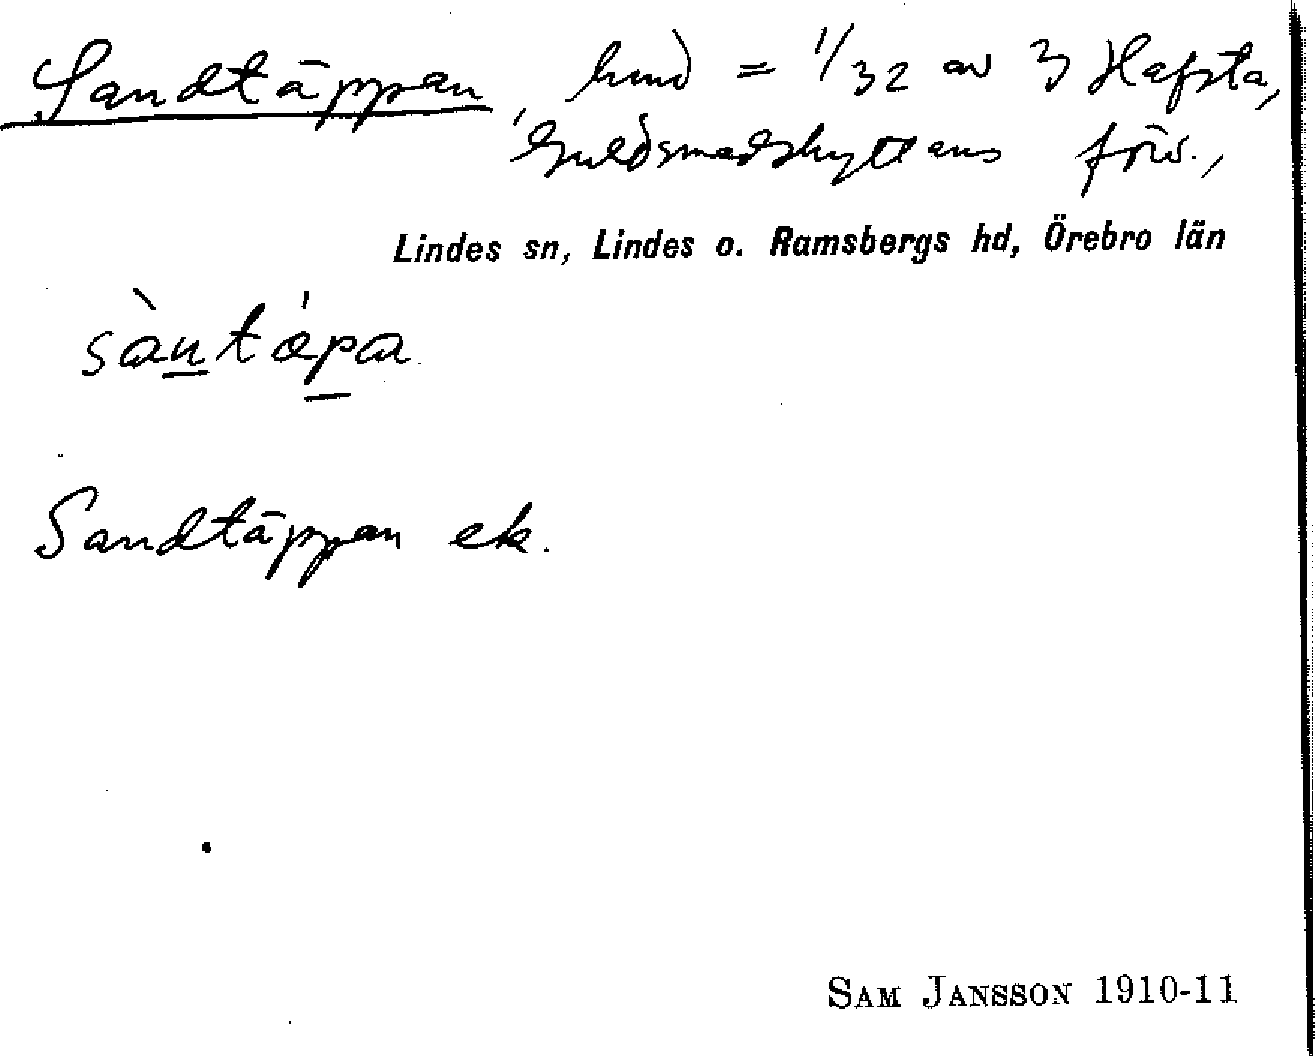 Sandtäppan, hmd = 1/32 av 3 Hafsta,
Guldsmedshyttans förs.,
Lindes sn, Lindes o. Ramsbergs hd, Örebro län
sàntǽpa
Sandtäppan ek.
SAM JANSSON 1910-11